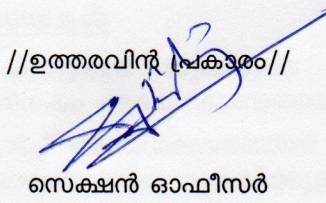 //ഉത്തരവിൻ പ്രകാരം//
സെക്ഷൻ ഓഫീസർ